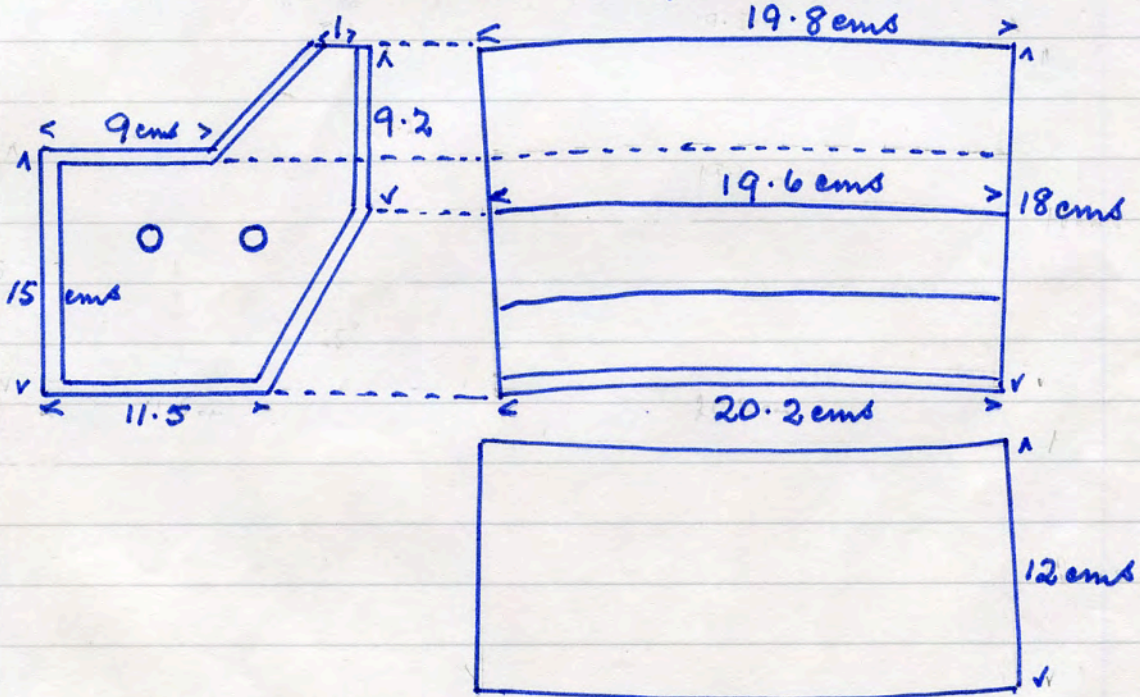 19.8 cms
1
9 cms
9.2
19.6 cms
18 cms
15 cms
11.5
20.2 cms
12 cms